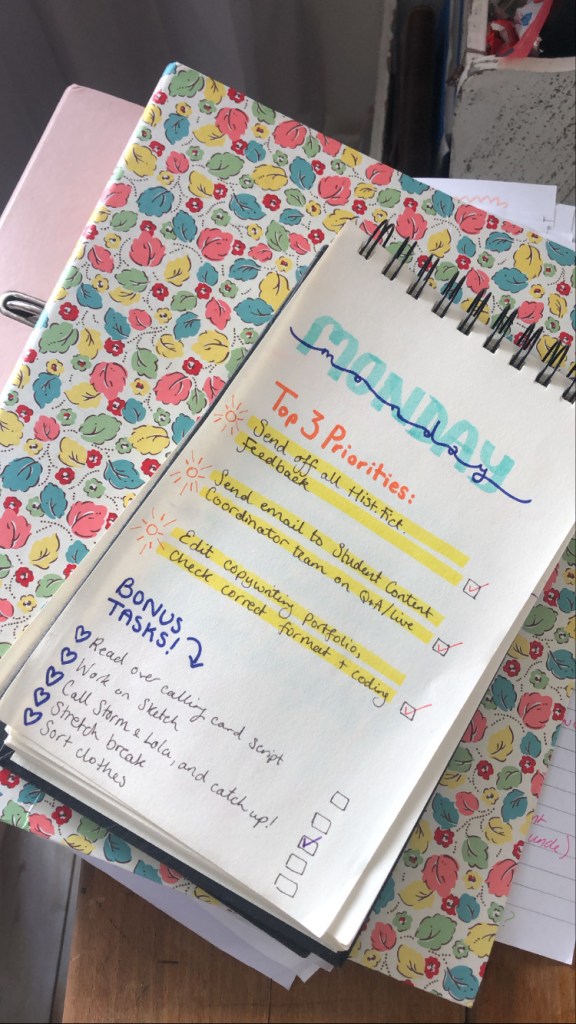 MONDAY
monday
Top 3 Priorities:
Send off all Hist Fict.
Feedback
Send email to Student Content
Coordinator team on Q+A/Live
Edit copywriting Portfolio,
check correct format + coding
BONUS
TASKS!
Read over calling card script
Work on sketch
Call Storm & Lola, and catch up!
Stretch break
Sort clothes